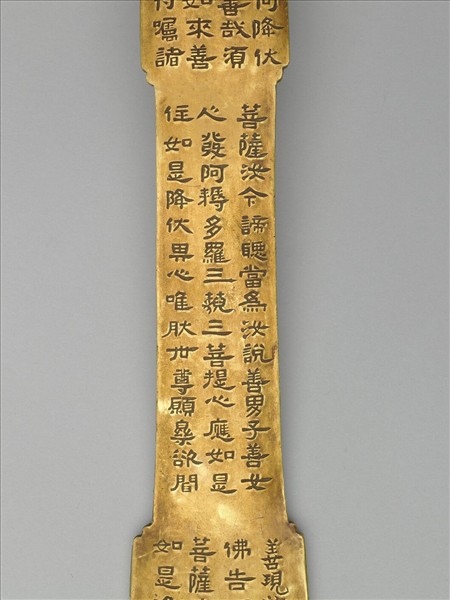 何降伏
善哉須
如來善
付囑諸
菩薩汝今諦聽當為汝說善男子善女
人發阿耨多羅三藐三菩提心應如是
住如是降伏其心唯然世尊願樂欲聞
善現
佛告
菩薩
如是